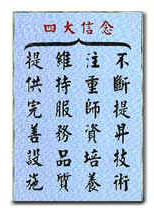 四大信念
不斷提昇技術
注重師資培養
維持服務品質
提供完善設施